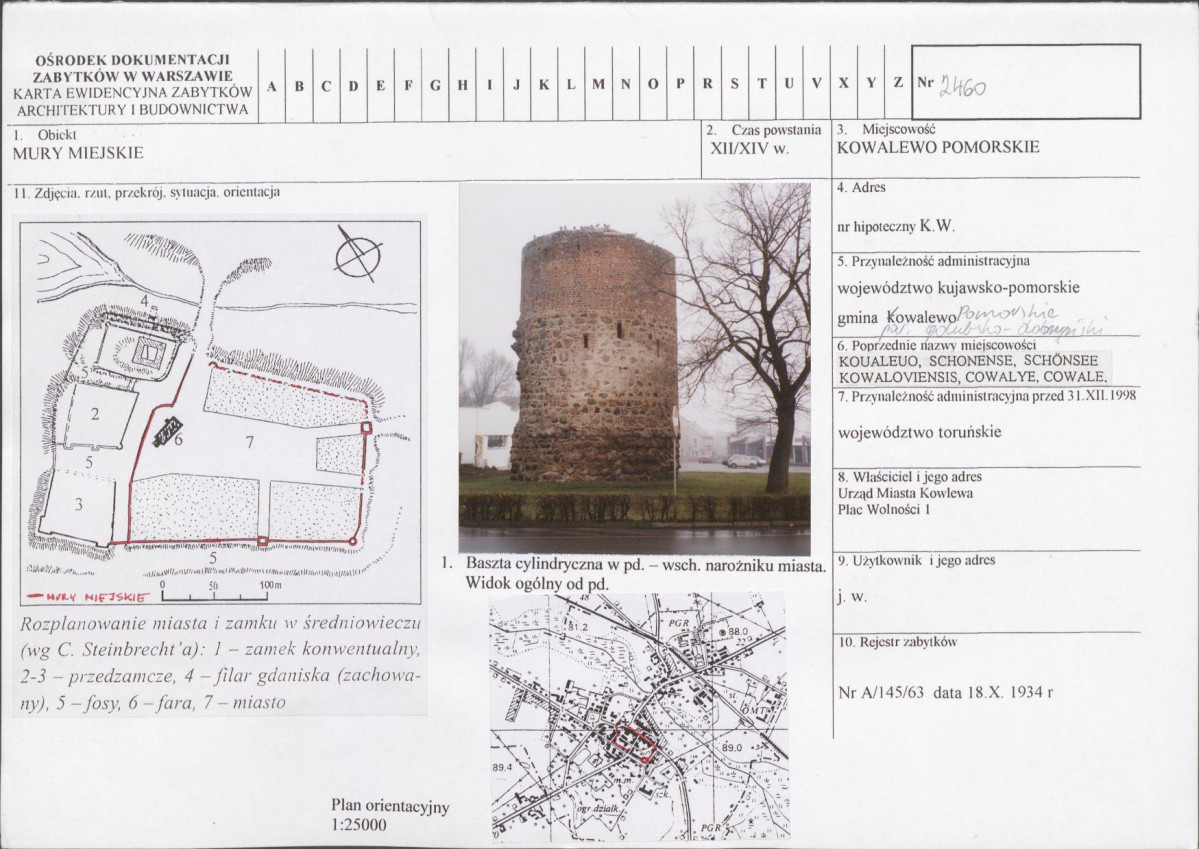 OŚRODEK DOKUMENTACJI
ZABYTKÓW W WARSZAWIE
KARTA EWIDENCYJNA ZABYTKÓW
ARCHITEKTURY I BUDOWNICTWA
A B C D E F G H I J K L M N O P R S T U V X Y Z
Nr 2460
1. Obiekt
MURY MIEJSKIE
2. Czas powstania
XII/XIV w.
3. Miejscowość
KOWALEWO POMORSKIE
11. Zdjęcia, rzut, przekrój, sytuacja, orientacja
4
5
2
6
7
5
3
5
0 50 100m
MURY MIEJSKIE
Rozplanowanie miasta i zamku w średniowieczu
(wg C. Steinbrecht'a): 1 – zamek konwentualny,
2-3 – przedzamcze, 4 – filar gdaniska (zachowa-
ny), 5 – fosy, 6 – fara, 7 – miasto
1. Baszta cylindryczna w pd. – wsch. narożniku miasta.
Widok ogólny od pd.
48
81.2
PGR
88.0
st
OMT
89.0
89.4
m.m.
szk.
ogr.działk.
PGR
Plan orientacyjny
1:25000
4. Adres
nr hipoteczny K.W.
5. Przynależność administracyjna
województwo kujawsko-pomorskie
gmina Kowalewo Pomorskie
pow. golubsko-dobrzyński
6. Poprzednie nazwy miejscowości
KOUALEUO, SCHONENSE, SCHÖNSEE
KOWALOVIENSIS, COWALYE, COWALE,
7. Przynależność administracyjna przed 31.XII.1998
województwo toruńskie
8. Właściciel i jego adres
Urząd Miasta Kowlewa
Plac Wolności 1
9. Użytkownik i jego adres
j. w.
10. Rejestr zabytków
Nr A/145/63 data 18.X. 1934 r